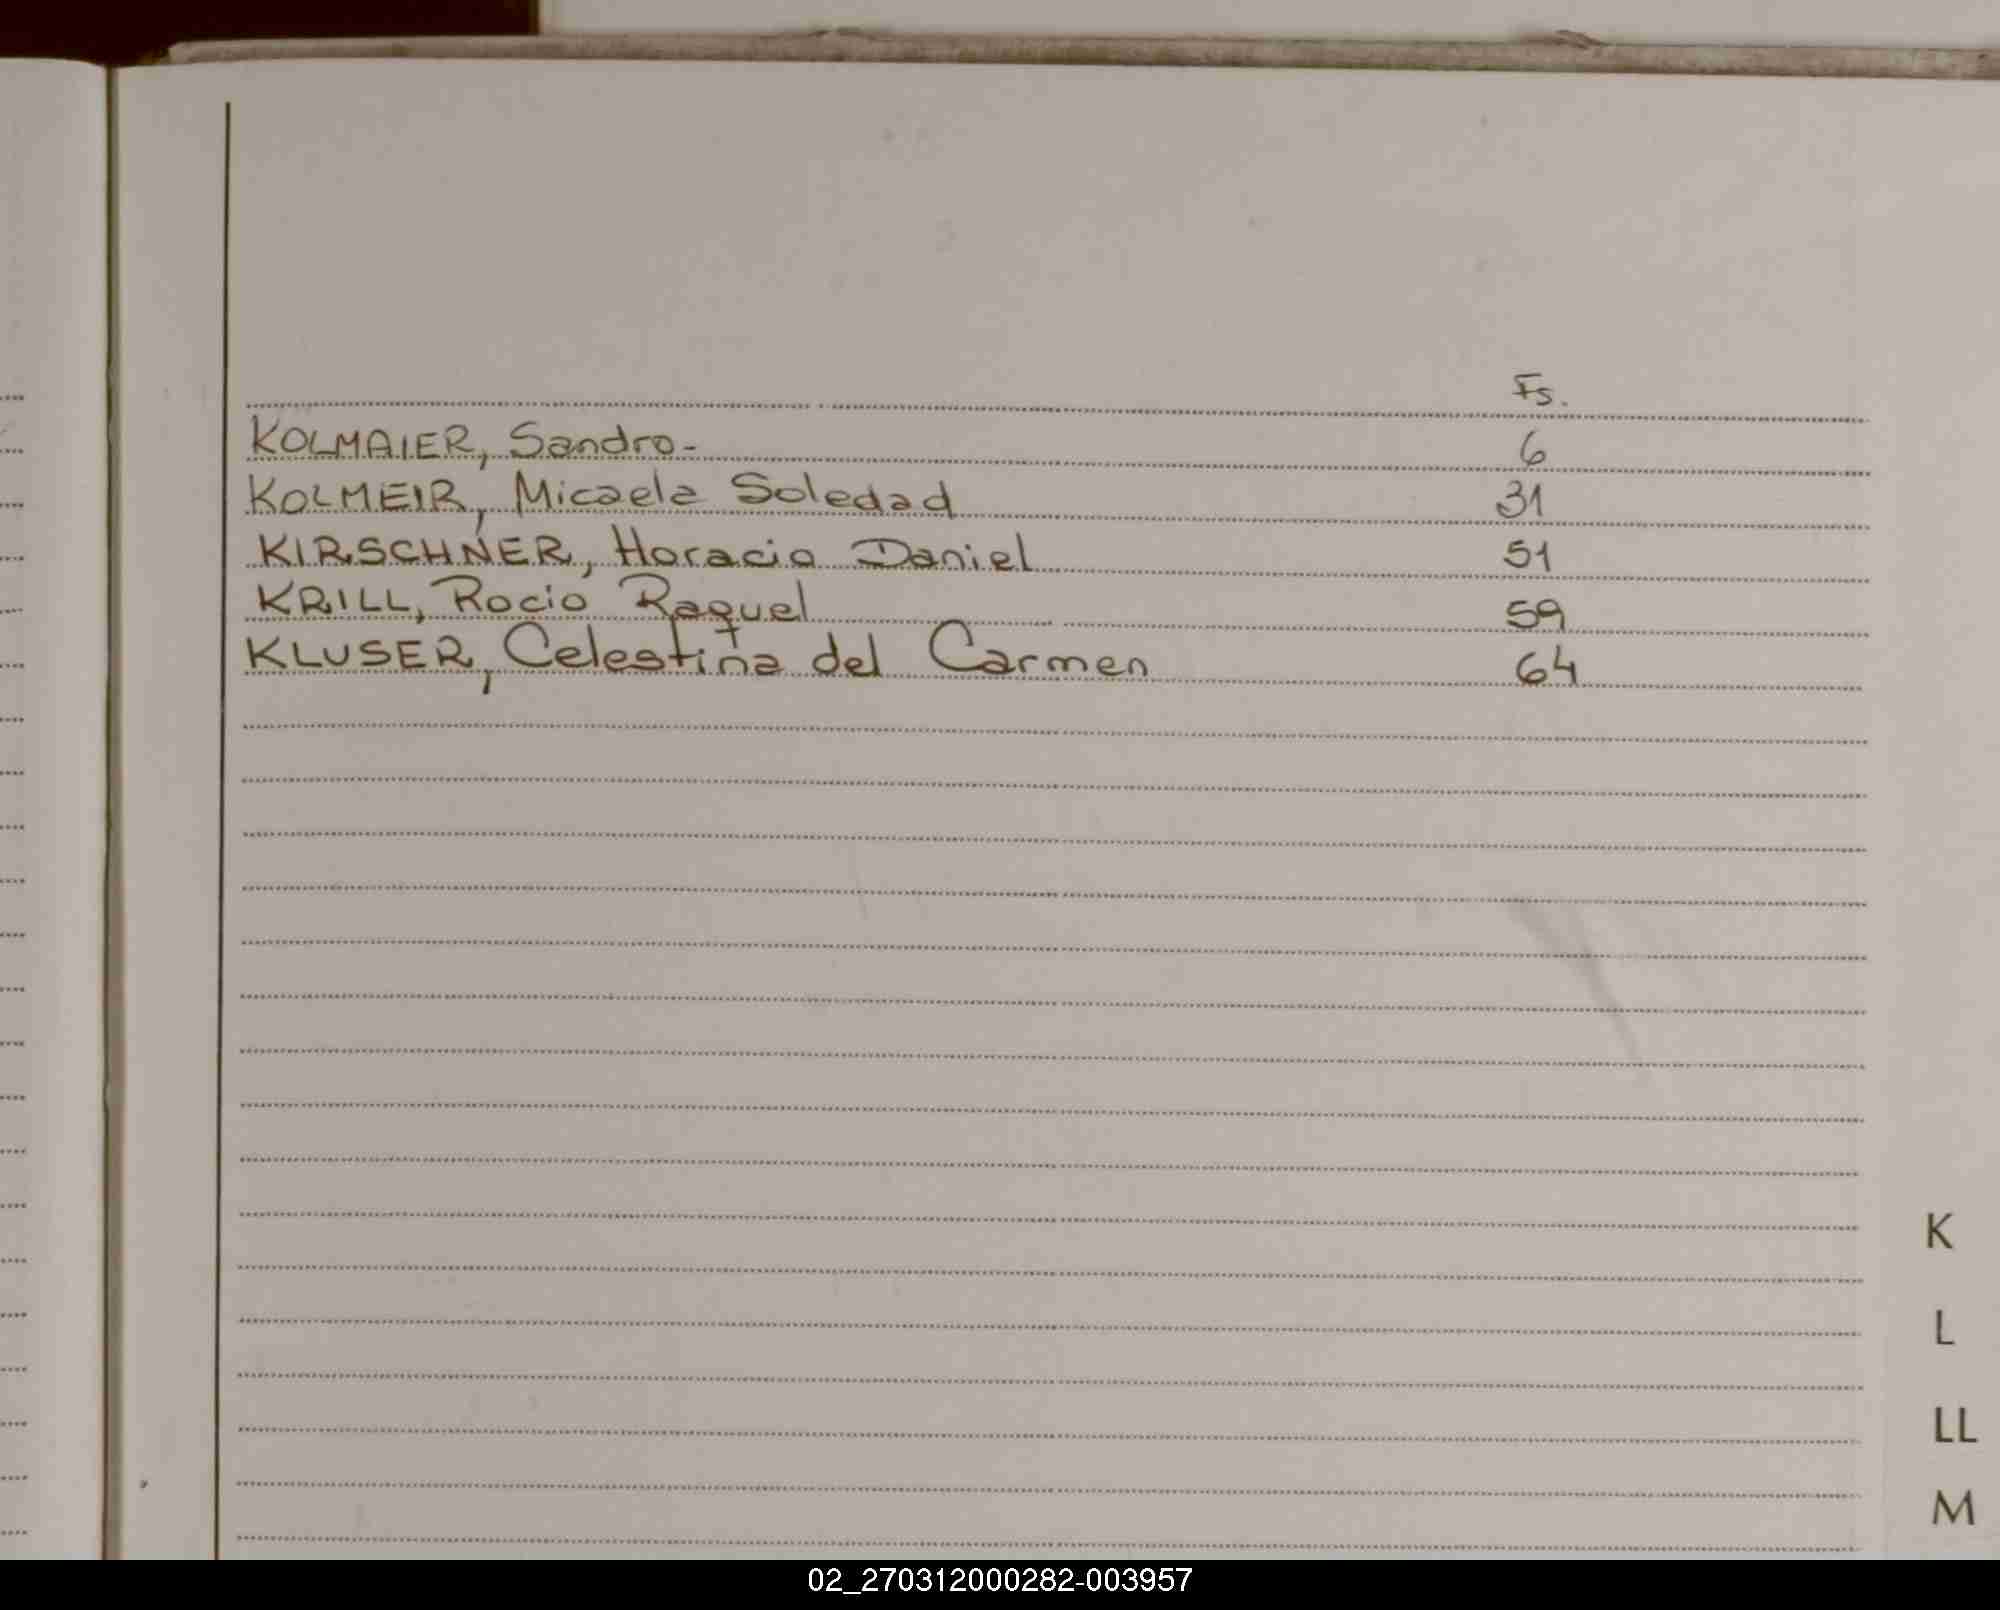 Fs.
KOLMAIER, Sandro- 6
KOLMEIR, Micaela Soledad 31
KIRSCHNER, Horacio Daniel 51
KRILL, Rocio Raquel 59
KLUSER, Celestina del Carmen 64
K
L
LL
M
02_270312000282-003957